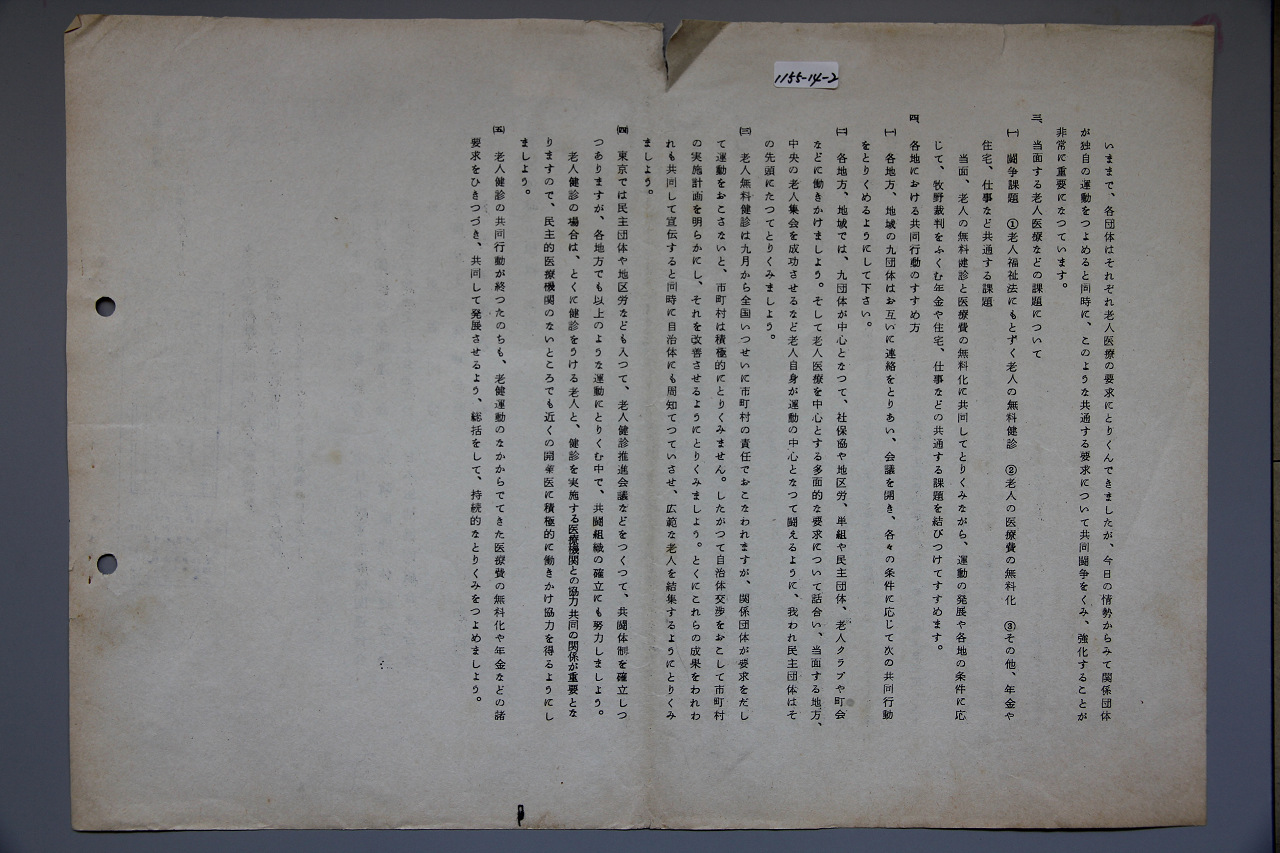 1155-14-2
いままで、各団体はそれぞれ老人医療の要求にとりくんできましたが、今日の情勢からみて関係団体
が独自の運動をつよめると同時に、このような共通する要求について共同闘争をくみ、強化することが
非常に重要になつています。
三、当面する老人医療などの課題について
㈠ 闘争課題 ①老人福祉法にもとずく老人の無料健診 ②老人の医療費の無料化 ③その他、年金や
住宅、仕事など共通する課題
当面、老人の無料健診と医療費の無料化に共同してとりくみながら、運動の発展や各地の条件に応
じて、牧野裁判をふくむ年金や住宅、仕事などの共通する課題を結びつけてすすめます。
四、各地における共同行動のすすめ方
㈠ 各地方、地域の九団体はお互いに連絡をとりあい、会議を開き、各々の条件に応じて次の共同行動
をとりくめるようにして下さい。
㈡ 各地方、地域では、九団体が中心となつて、社保協や地区労、単組や民主団体、老人クラブや町会
などに働きかけましよう。そして老人医療を中心とする多面的な要求について話合い、当面する地方、
中央の老人集会を成功させるなど老人自身が運動の中心となつて闘えるように、我われ民主団体はそ
の先頭にたつてとりくみましよう。
㈢ 老人無料健診は九月から全国いつせいに市町村の責任でおこなわれますが、関係団体が要求をだし
て運動をおこさないと、市町村は積極的にとりくみません。したがつて自治体交渉をおこして市町村
の実施計画を明らかにし、それを改善させるようにとりくみましよう。とくにこれらの成果をわれわ
れも共同して宣伝すると同時に自治体にも周知てつていさせ、広範な老人を結集するようにとりくみ
ましよう。
㈣ 東京では民主団体や地区労なども入つて、老人健診推進会議などをつくつて、共闘体制を確立しつ
つありますが、各地方でも以上のような運動にとりくむ中で、共闘組織の確立にも努力しましよう。
老人健診の場合は、とくに健診をうける老人と、健診を実施する医療機関との協力共同の関係が重要とな
りますので、民主的医療機関のないところでも近くの開業医に積極的に働きかけ協力を得るようにし
ましよう。
㈤ 老人健診の共同行動が終つたのちも、老健運動のなかからでてきた医療費の無料化や年金などの諸
要求をひきつづき、共同して発展させるよう、総括をして、持続的なとりくみをつよめましよう。